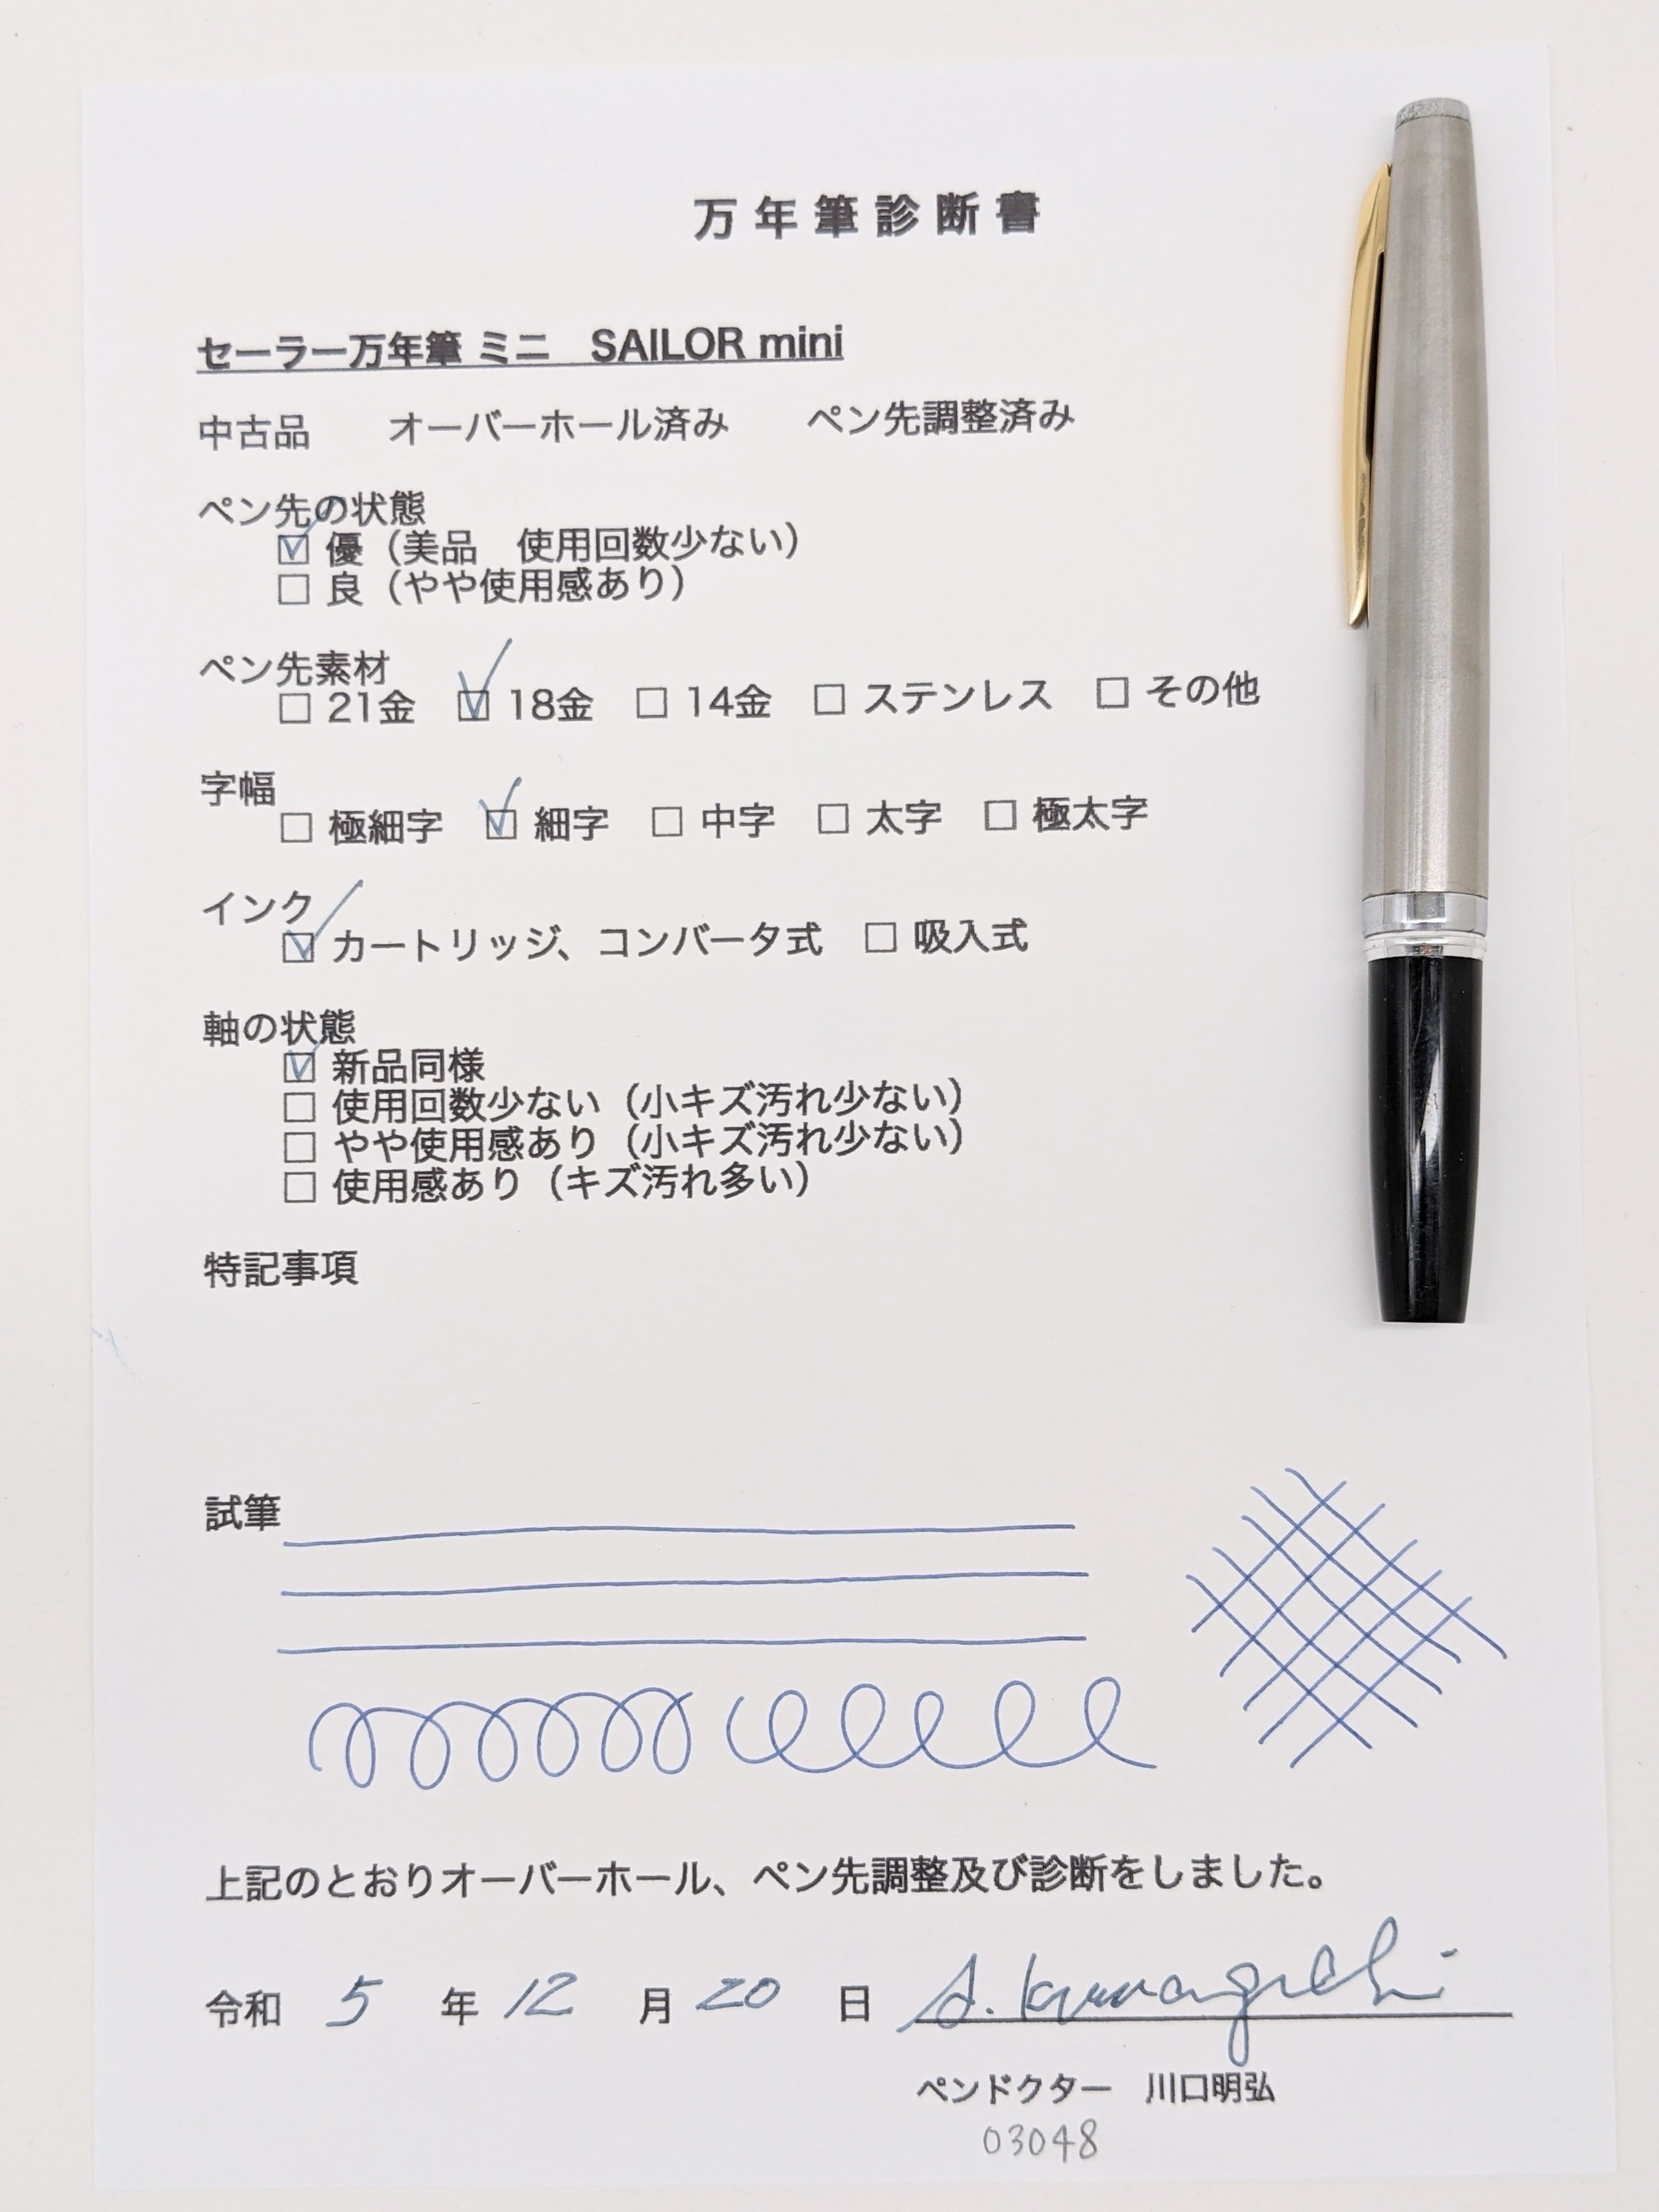 万年筆診断書
セーラー万年筆 ミニ　SAILOR mini
中古品　　オーバーホール済み　　ペン先調整済み
ペン先の状態
☑ 優（美品　使用回数少ない）
□ 良（やや使用感あり）
ペン先素材
□ 21金　☑ 18金　□ 14金　□ ステンレス　□ その他
字幅
□ 極細字　☑ 細字　□ 中字　□ 太字　□ 極太字
インク
☑ カートリッジ、コンバータ式　□ 吸入式
軸の状態
☑ 新品同様
□ 使用回数少ない（小キズ汚れ少ない）
□ やや使用感あり（小キズ汚れ少ない）
□ 使用感あり（キズ汚れ多い）
特記事項
試筆
上記のとおりオーバーホール、ペン先調整及び診断をしました。
令和 5 年 12 月 20 日 A. Kawaguchi
ペンドクター　川口明弘
03048